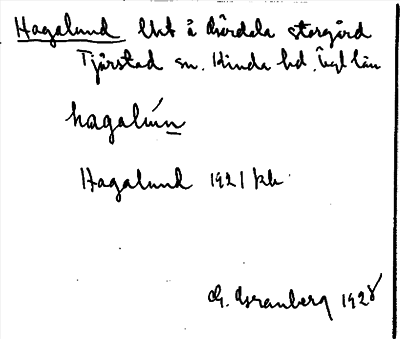 Hagalund lht å Gärdala storgård
Tjärstad sn. Kinda hd. Ögl län
hagalún
Hagalund 1921 kb.
G. Granberg 1928